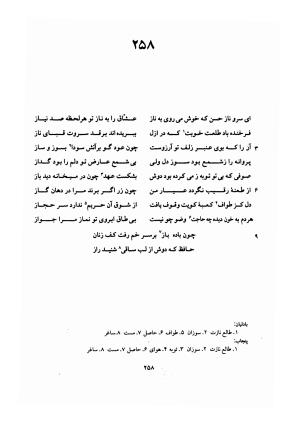 ۲۵۸
ای سرو ناز حسن که خوش می روی به ناز عشّاق را به ناز تو هرلحظه صد نیاز
فرخنده باد طلعت خوبت¹ که در ازل ببریده‌اند برقد سروت قبای ناز
۳ آن را که بوی عنبر زلف تو آرزوست چون عود گو برآتش سودا² بسوز و ساز
پروانه را زشمع بود سوز دل ولی بی شمع عارض تو دلم را بود گداز
صوفی که بی تو توبه ز می کرده بود دوش بشکست عهد³ چون در میخانه دید باز
۶ از طعنهٔ رقیب نگردد عیار من چون زر اگر برند مرا در دهان گاز
دل کز طواف⁵ کعبهٔ کویت وقوف یافت از شوق آن حریم⁶ ندارد سر حجاز
هردم به خون دیده چه حاجت⁷ وضو چو نیست بی طاق ابروی تو نماز مرا جواز
چون باده باز⁸ برسر خم رفت کف زنان
۹ حافظ که دوش از لب ساقی⁸ شنید راز
بادلیان:
۱. طالع نازت ۲. سوزان ۵. طواف ۶. حاصل ۷. مست ۸. ساغر
پنجاب:
۱. طالع نازت ۲. سوزان ۳. توبه ۴. هوای ۶. حاصل ۷. مست ۸. ساغر
۲۵۸